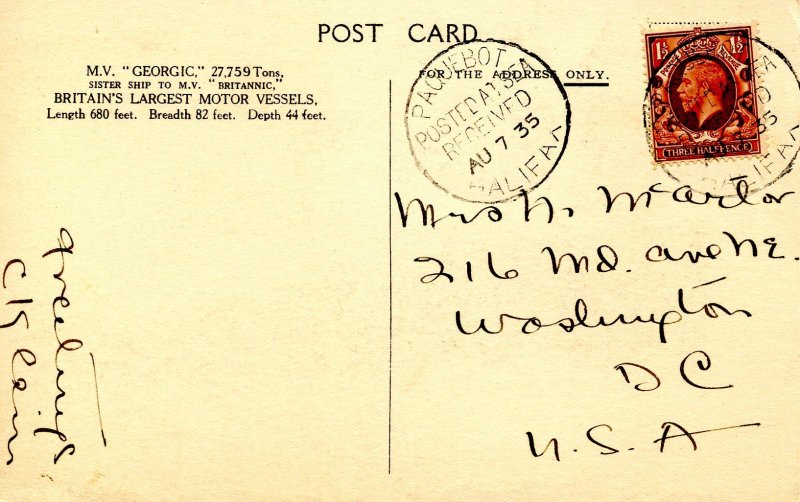 POST CARD
M.V. "GEORGIC," 27,759 Tons,
SISTER SHIP TO M.V. "BRITANNIC,"
BRITAIN'S LARGEST MOTOR VESSELS,
Length 680 feet. Breadth 82 feet. Depth 44 feet.
FOR THE ADDRESS ONLY.
PAQUEBOT
POSTED AT SEA
RECEIVED
AU 7 35
HALIFAX
1½ 1½
THREE HALFPENCE
Mrs N. McArtor
216 Md. ave NE.
Washington
DC
U.S.A
Greetings